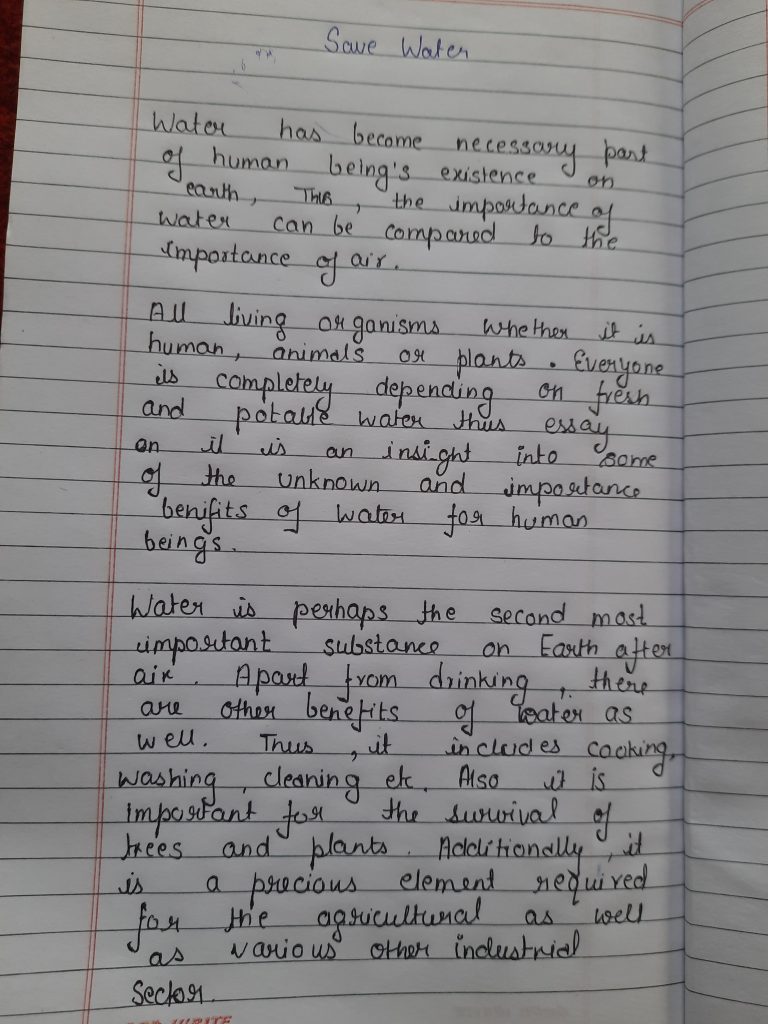 Save Water
Water has become necessary part
of human being's existence on
earth, This, the importance of
water can be compared to the
importance of air.
All living organisms whether it is
human, animals or plants. Everyone
is completely depending on fresh
and potable water thus essay
on it is an insight into some
of the unknown and importance
benifits of water for human
beings.
Water is perhaps the second most
important substance on Earth after
air. Apart from drinking, there
are other benefits of water as
well. Thus, it includes cooking,
washing, cleaning etc. Also it is
important for the survival of
trees and plants. Additionally, it
is a precious element required
for the agricultural as well
as various other industrial
sector.